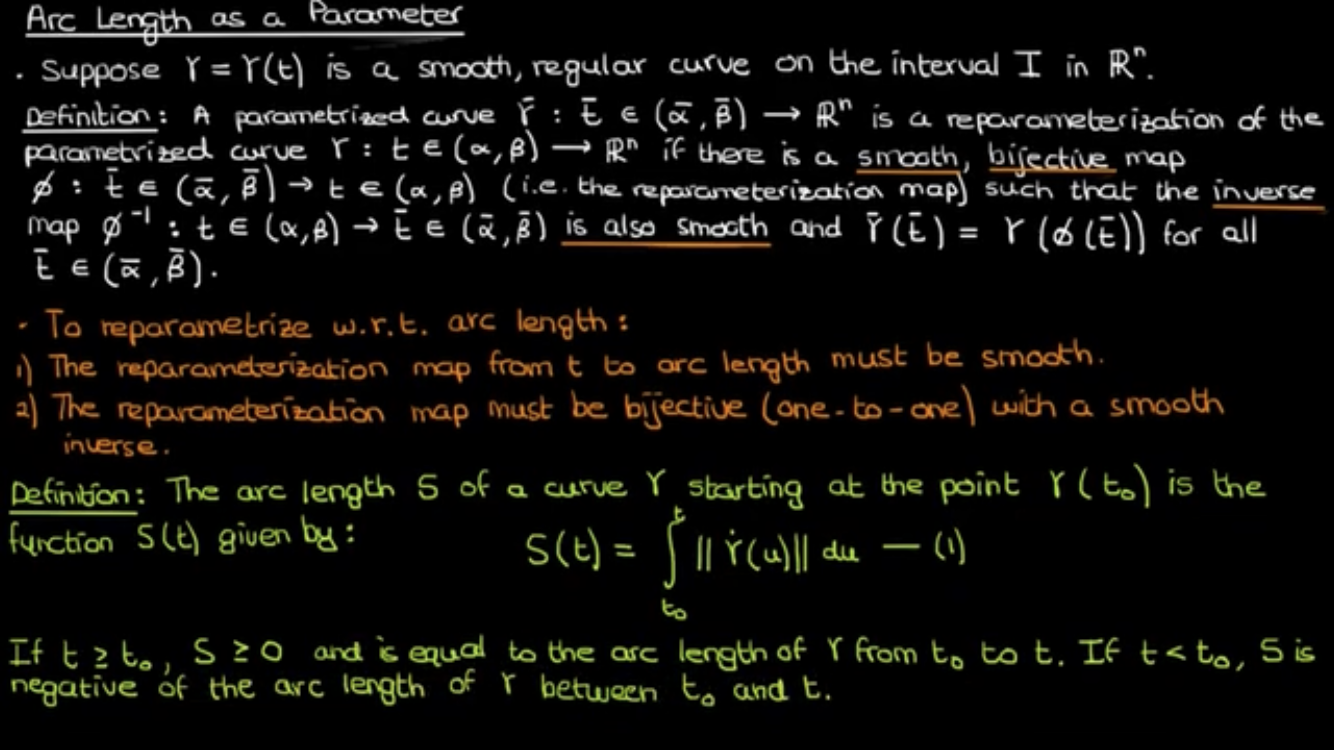 Arc Length as a Parameter
. Suppose γ = γ(t) is a smooth, regular curve on the interval I in ℝⁿ.
Definition: A parametrized curve γ̄ : t̄ ∈ (ᾱ, β̄) → ℝⁿ is a reparameterization of the
parametrized curve γ : t ∈ (α, β) → ℝⁿ if there is a smooth, bijective map
φ : t̄ ∈ (ᾱ, β̄) → t ∈ (α, β) (i.e. the reparameterization map) such that the inverse
map φ⁻¹ : t ∈ (α, β) → t̄ ∈ (ᾱ, β̄) is also smooth and γ̄(t̄) = γ(φ(t̄)) for all
t̄ ∈ (ᾱ, β̄).
- To reparametrize w.r.t. arc length:
1) The reparameterization map from t to arc length must be smooth.
2) The reparameterization map must be bijective (one-to-one) with a smooth
inverse.
Definition: The arc length S of a curve γ starting at the point γ(t₀) is the
function S(t) given by:
S(t) = ∫_{t₀}^{t} || γ̇(u)|| du — (1)
If t ≥ t₀, S ≥ 0 and is equal to the arc length of γ from t₀ to t. If t < t₀, S is
negative of the arc length of γ between t₀ and t.